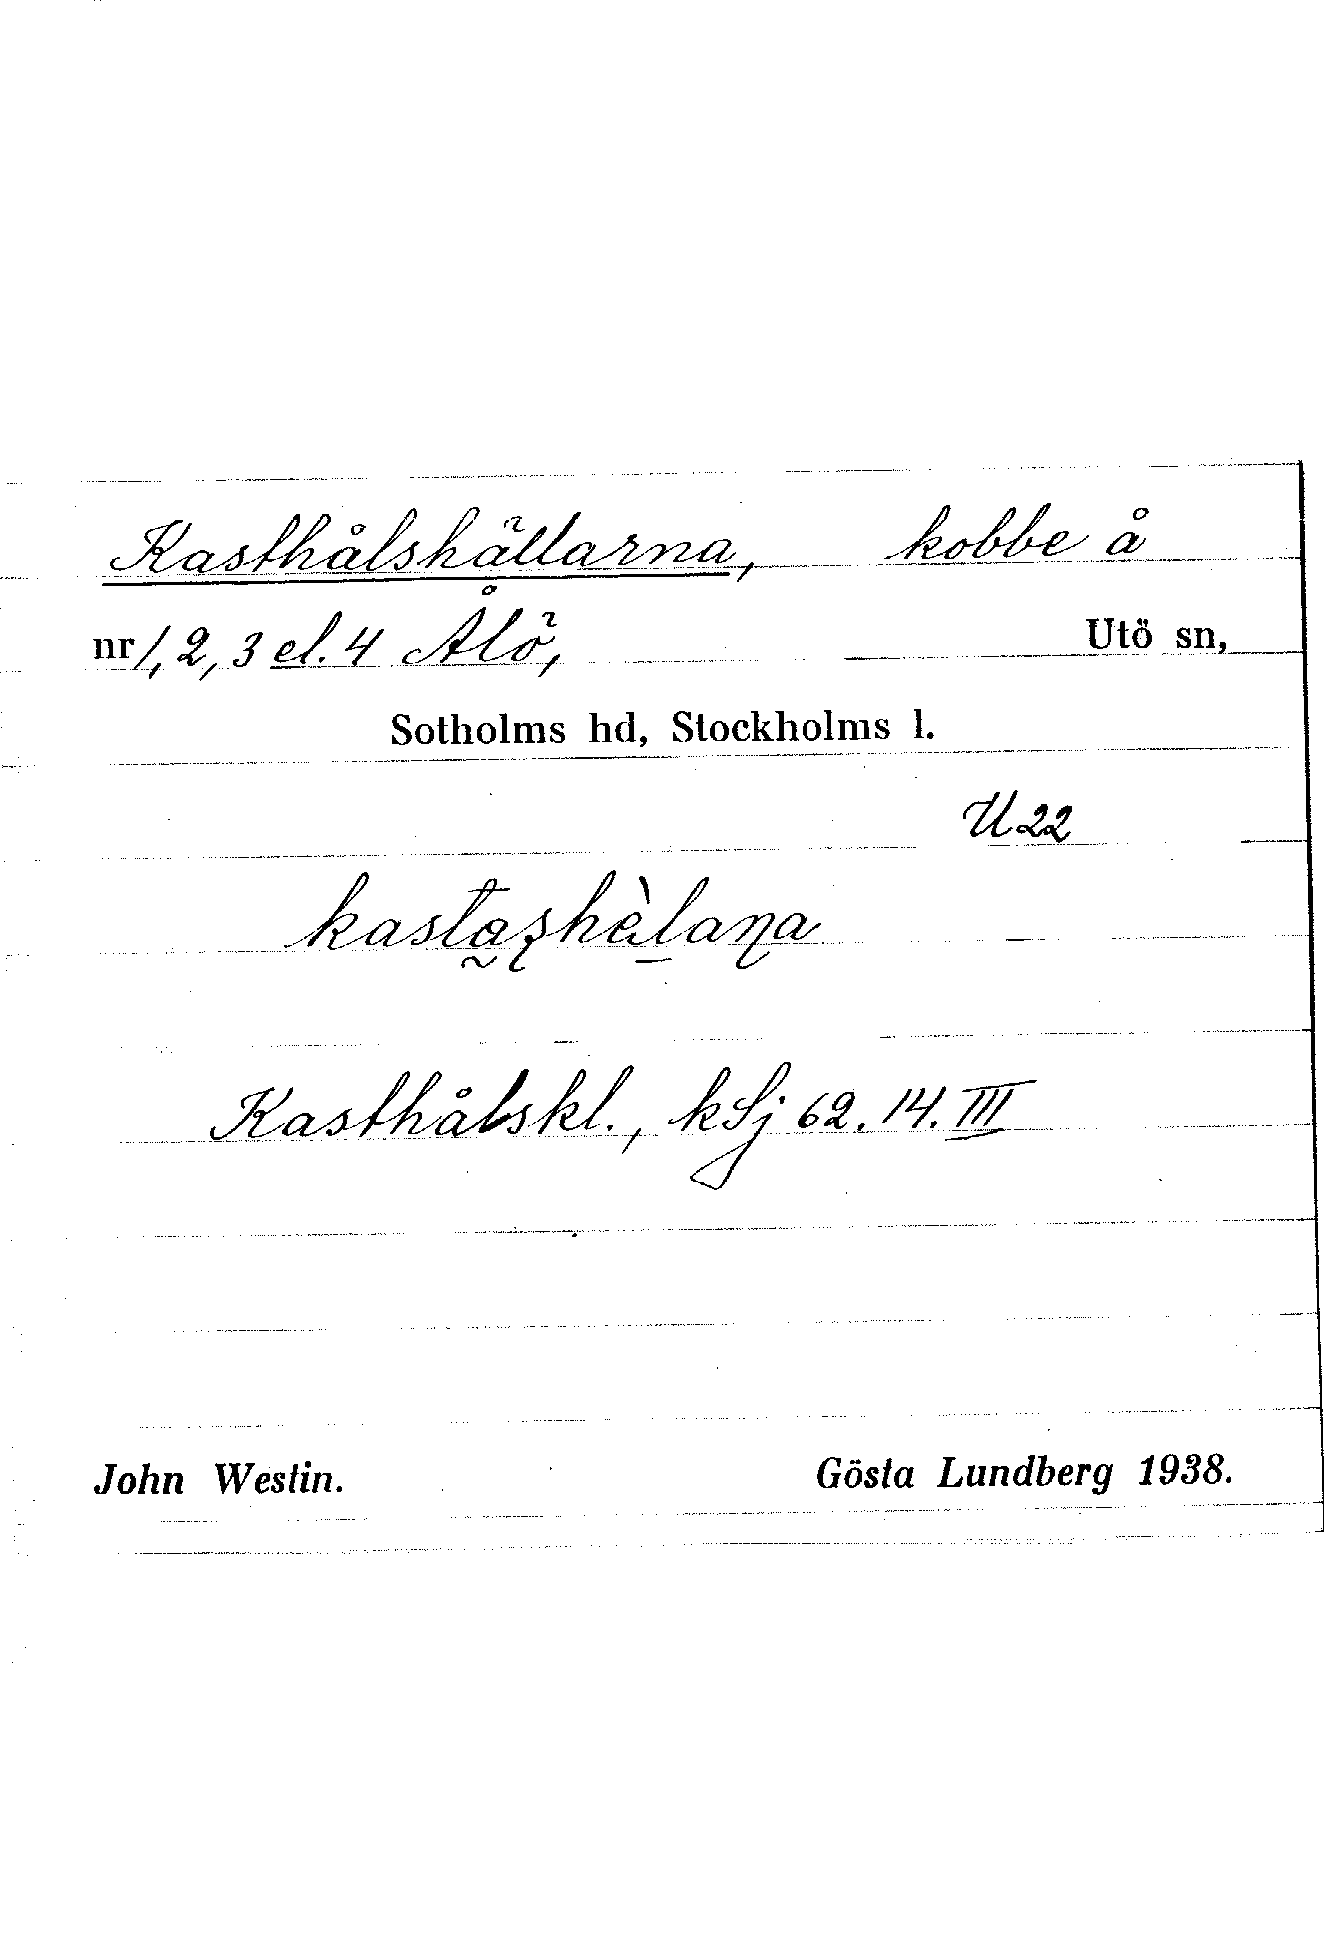 Kasthålshällarna, kobbe å
nr 1, 2, 3 el. 4 Ålö, Utö sn,
Sotholms hd, Stockholms l.
U 22
Kasthålskl., kSj 62. 14. III
John Westin. Gösta Lundberg 1938.